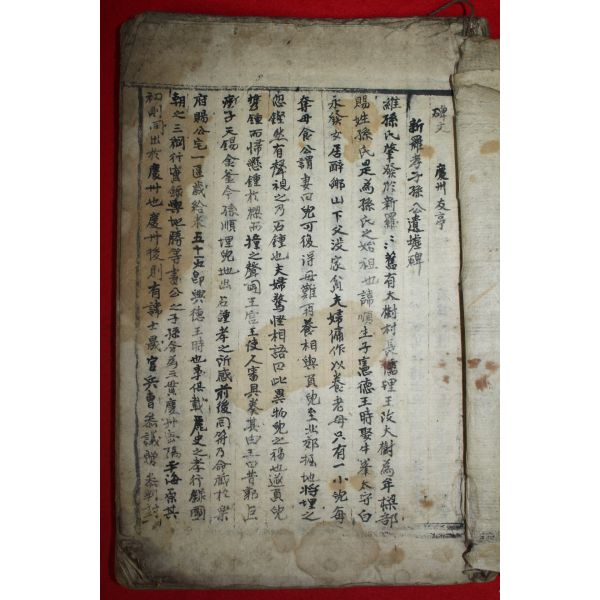 碑文 慶州友亭
新羅孝子孫公遺墟碑
維孫氏肇發於新羅〻舊有大樹村長 儒理王改大樹為牟梁部
賜姓孫氏是為孫氏之始祖也諱順生子憲德王時娶牛峯太守白
永發女居醉鄉山下父沒家貧夫婦傭作以養老母只有一小兒每
奪母食公謂妻曰兒可後得母難再養相與負兒至北郊掘地將埋之
忽鏗然有聲視之乃石鍾也夫婦驚怪相語曰此異物兒之福也遂負兒
携鍾而歸懸鍾於樑而撞之聲聞王宮王使人審其奏其由王曰昔郭巨
瘞子天錫金釜今孫順埋兒地出石鍾孝之所感前後同符乃命藏於樂
府賜公宅一區歲給米五十石即興德王時也事俱載麗史之孝行錄國
朝之三綱行實錄輿地勝等書公之子孫分為三貫慶州密陽平海宗其
初則同出於慶州也慶州後則有諱士晟官兵曹叅議贈叅判